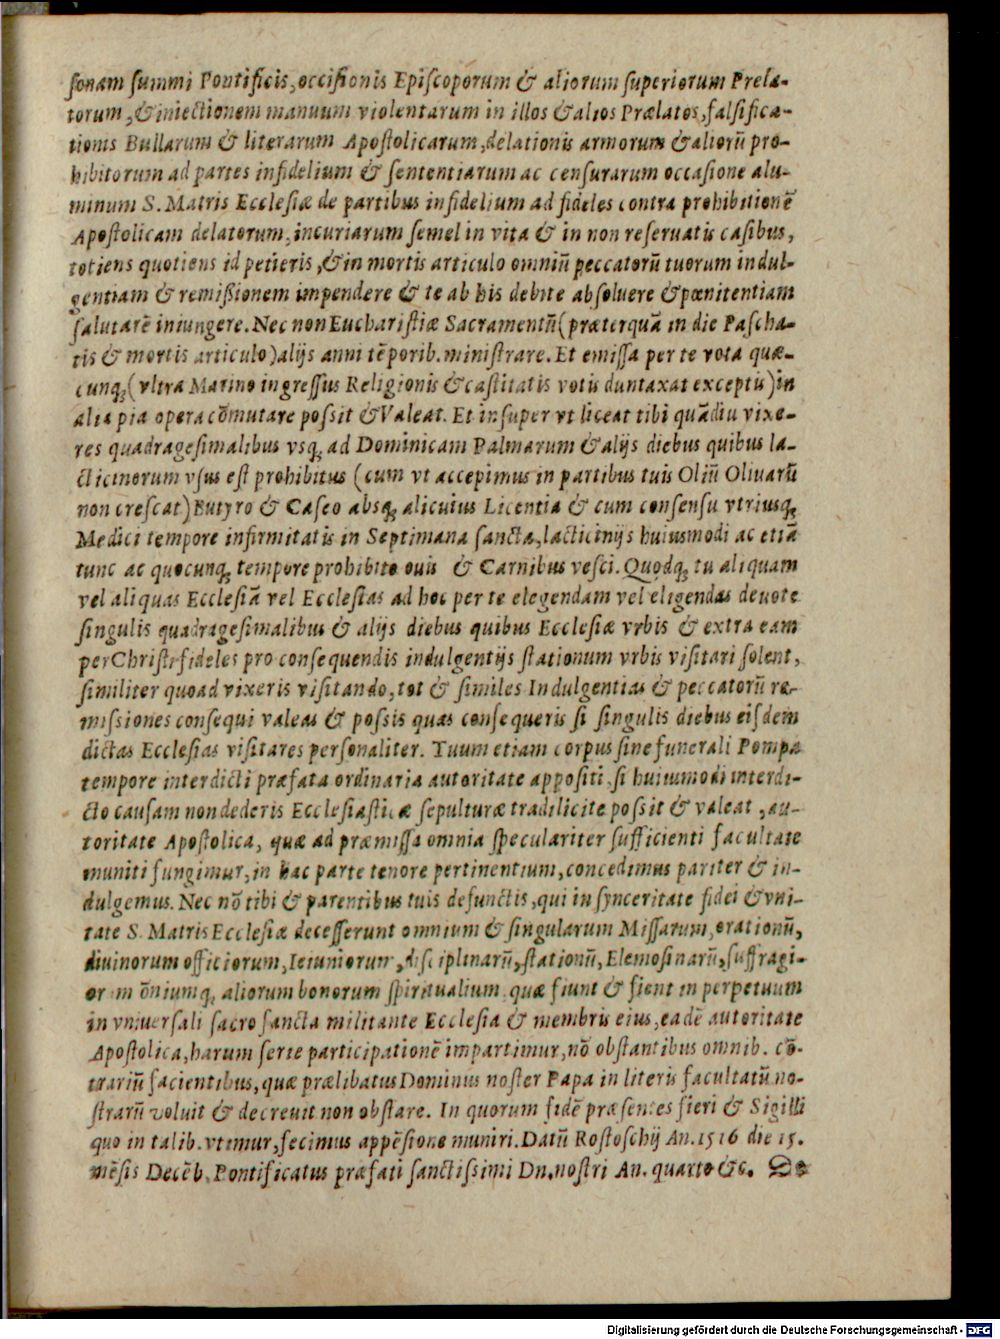 ſonam ſummi Pontificis, occiſionis Epiſcoporum & aliorum ſuperiorum Prela-
torum, & iniectionem manuum violentarum in illos & alios Prælatos, falſifica-
tionis Bullarum & literarum Apoſtolicarum, delationis armorum & aliorū pro-
hibitorum ad partes infidelium & ſententiarum ac cenſurarum occaſione alu-
minum S. Matris Eccleſiæ de partibus infidelium ad fideles contra prohibitionē
Apoſtolicam delatorum, incuriarum ſemel in vita & in non reſeruatis caſibus,
totiens quotiens id petieris, & in mortis articulo omniū peccatorū tuorum indul-
gentiam & remiſſionem impendere & te ab his debite abſoluere & pœnitentiam
ſalutarē iniungere. Nec non Euchariſtiæ Sacramentū (præterquā in die Paſcha-
tis & mortis articulo) alijs anni tēporib. miniſtrare. Et emiſſa per te vota quæ-
cunq; (vltra Marino ingreſſus Religionis & caſtitatis votis duntaxat exceptis) in
alia pia opera cōmutare poſsit & Valeat. Et inſuper vt liceat tibi quādiu vixe-
res quadrageſimalibus vsq; ad Dominicam Palmarum & alijs diebus quibus la-
cticinorum vſus eſt prohibitus (cum vt accepimus in partibus tuis Oliū Oliuarū
non creſcat) Butyro & Caſeo absq; alicuius Licentia & cum conſenſu vtriusq;
Medici tempore infirmitatis in Septimana ſancta, lacticinijs huiusmodi ac etiā
tunc ac quocunq; tempore prohibito ouis & Carnibus veſci. Quodq; tu aliquam
vel aliquas Eccleſiā vel Eccleſias ad hoc per te elegendam vel eligendas deuote
ſingulis quadrageſimalibus & alijs diebus quibus Eccleſiæ vrbis & extra eam
per Chriſti fideles pro conſequendis indulgentijs ſtationum vrbis viſitari ſolent,
ſimiliter quoad vixeris viſitando, tot & ſimiles Indulgentias & peccatorū re-
miſsiones conſequi valeas & poſsis quas conſequeris ſi ſingulis diebus eiſdem
dictas Eccleſias viſitares perſonaliter. Tuum etiam corpus ſine funerali Pompa
tempore interdicti præfata ordinaria autoritate appoſiti, ſi huiumodi interdi-
cto cauſam non dederis Eccleſiaſticæ ſepulturæ tradi licite poſsit & valeat, au-
toritate Apoſtolica, quæ ad præmiſſa omnia ſpeculariter ſufficienti facultate
muniti fungimur, in hac parte tenore pertinentium, concedimus pariter & in-
dulgemus. Nec nō tibi & parentibus tuis defunctis, qui in ſynceritate fidei & vni-
tate S. Matris Eccleſiæ deceſſerunt omnium & ſingularum Miſſarum, orationū,
diuinorum officiorum, Ieiuniorum, diſciplinarū, ſtationū, Elemoſinarū, ſuffragi-
orum ōniumq; aliorum bonorum ſpiritualium quæ fiunt & fient in perpetuum
in vniuerſali ſacro ſancta militante Eccleſia & membris eius, eadē autoritate
Apoſtolica, harum ſerie participationē impartimur, nō obſtantibus omnib. cō-
trariū facientibus, quæ prælibatus Dominus noſter Papa in literis facultatū no-
ſtrarū voluit & decreuit non obſtare. In quorum fidē præſentes fieri & Sigilli
quo in talib. vtimur, fecimus appēſione muniri. Datū Roſtoſchij An. 1516 die 15.
mēſis Decēb. Pontificatus præfati ſanctiſsimi Dn. noſtri An. quarto &c. De
Digitalisierung gefördert durch die Deutsche Forschungsgemeinschaft - DFG